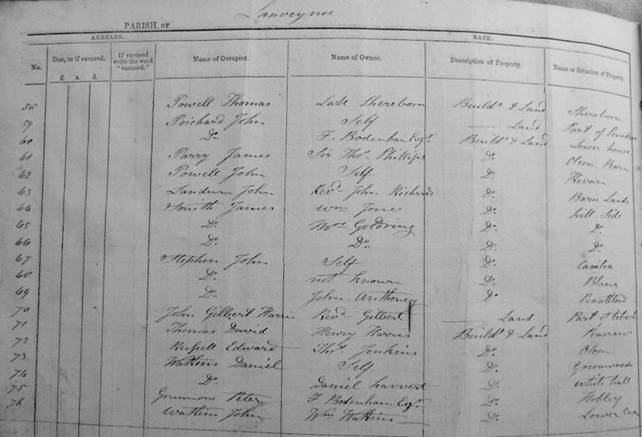 PARISH or
ARREARS. RATE.
No. Due, or if excused. If excused write the word "excused." Name of Occupier. Name of Owner. Description of Property. Name or Situation of Property.
£. s. d.
58 Powell Thomas Late Build.s & Land
59 Prichard John Self Land Part of
60 Do F. Bodenham Esq. Build.s & Land Lower house
61 Parry James Sir Thos. Phillips Do Barn
62 Powell John Self Do
63 John Revd. John Richards Do Barn Land
64 Smith James Wm Jones Do Do
65 Do Mrs Goldring Do Do
66 Do Do Do
67 Stephen John Self Do
68 Do not known Do
69 Do John Anthony Do
70 John Gilbert Harris Revd. Gilbert Land Part of
71 Thomas David Henry Harris Build.s & Land
72 Russell Edward Thos. Jenkins Do
73 Watkins Daniel Self Do Greenwoods
74 Do Daniel Do White hall
75 Peter F Bodenham Esq. Do
76 Watkins John Wm Watkins Do Lower